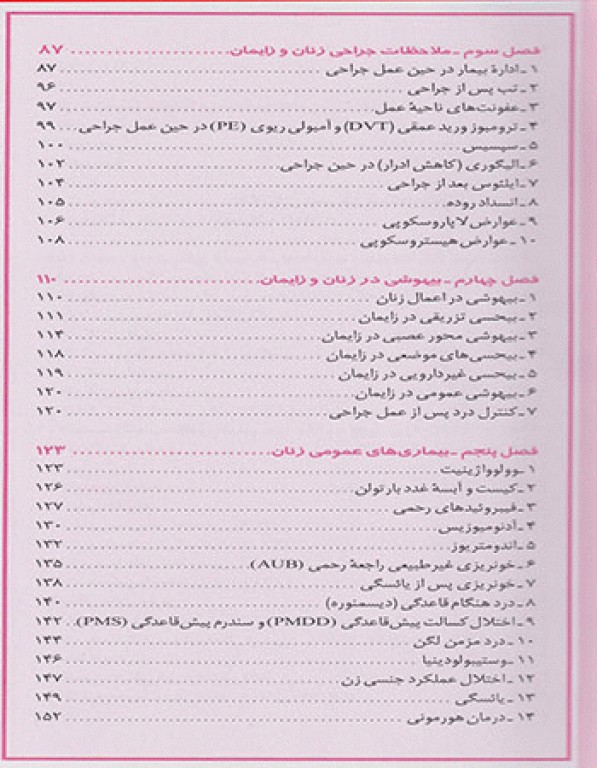 فصل سوم ـ ملاحظات جراحی زنان و زایمان ........ ۸۷
۱ ـ ادارهٔ بیمار در حین عمل جراحی ........ ۸۷
۲ ـ تب پس از جراحی ........ ۹۶
۳ ـ عفونت‌های ناحیهٔ عمل ........ ۹۷
۴ ـ ترومبوز ورید عمقی (DVT) و آمبولی ریوی (PE) در حین عمل جراحی ... ۹۹
۵ ـ سپسیس ........ ۱۰۰
۶ ـ الیگوری (کاهش ادرار) در حین جراحی ........ ۱۰۲
۷ ـ ایلئوس بعد از جراحی ........ ۱۰۴
۸ ـ انسداد روده ........ ۱۰۵
۹ ـ عوارض لاپاروسکوپی ........ ۱۰۶
۱۰ ـ عوارض هیستروسکوپی ........ ۱۰۸
فصل چهارم ـ بیهوشی در زنان و زایمان ........ ۱۱۰
۱ ـ بیهوشی در اعمال زنان ........ ۱۱۰
۲ ـ بیحسی تزریقی در زایمان ........ ۱۱۱
۳ ـ بیهوشی محور عصبی در زایمان ........ ۱۱۴
۴ ـ بیحسی‌های موضعی در زایمان ........ ۱۱۸
۵ ـ بیحسی غیردارویی در زایمان ........ ۱۱۹
۶ ـ بیهوشی عمومی در زایمان ........ ۱۲۰
۷ ـ کنترل درد پس از عمل جراحی ........ ۱۲۰
فصل پنجم ـ بیماری‌های عمومی زنان ........ ۱۲۳
۱ ـ وولوواژینیت ........ ۱۲۳
۲ ـ کیست و آبسهٔ غدد بارتولن ........ ۱۲۶
۳ ـ فیبروئیدهای رحمی ........ ۱۲۷
۴ ـ آدنومیوزیس ........ ۱۳۰
۵ ـ اندومتریوز ........ ۱۳۲
۶ ـ خونریزی غیرطبیعی راجعهٔ رحمی (AUB) ........ ۱۳۵
۷ ـ خونریزی پس از یائسگی ........ ۱۳۸
۸ ـ درد هنگام قاعدگی (دیسمنوره) ........ ۱۴۰
۹ ـ اختلال کسالت پیش‌قاعدگی (PMDD) و سندرم پیش‌قاعدگی (PMS) .. ۱۴۲
۱۰ ـ درد مزمن لگن ........ ۱۴۴
۱۱ ـ وستیبولودینیا ........ ۱۴۶
۱۲ ـ اختلال عملکرد جنسی زن ........ ۱۴۷
۱۳ ـ یائسگی ........ ۱۴۹
۱۴ ـ درمان هورمونی ........ ۱۵۲